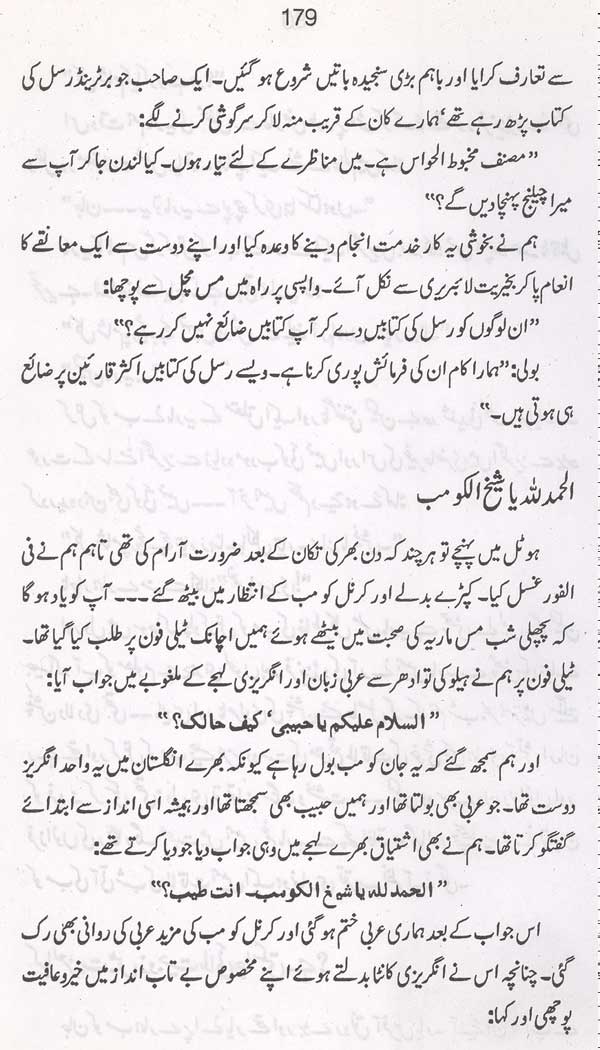 179
سے تعارف کرایا اور باہم بڑی سنجیدہ باتیں شروع ہو گئیں۔ ایک صاحب جو برٹرینڈ رسل کی
کتاب پڑھ رہے تھے‘ ہمارے کان کے قریب منہ لا کر سرگوشی کرنے لگے:
”مصنف مخبوط الحواس ہے۔ میں مناظرے کے لئے تیار ہوں۔ کیا لندن جا کر آپ سے
میرا چیلنج پہنچا دیں گے؟“
ہم نے بخوشی یہ کار خدمت انجام دینے کا وعدہ کیا اور اپنے دوست سے ایک معانقے کا
انعام پا کر بخیریت لائبریری سے نکل آئے۔ واپسی پر راہ میں مس مچل سے پوچھا:
”ان لوگوں کو رسل کی کتابیں دے کر آپ کتابیں ضائع نہیں کر رہے؟“
بولی: ”ہمارا کام ان کی فرمائش پوری کرنا ہے۔ ویسے رسل کی کتابیں اکثر قارئین پر ضائع
ہی ہوتی ہیں۔“
الحمدللہ یا شیخ الکومب
ہوٹل میں پہنچے تو ہر چند کہ دن بھر کی تکان کے بعد ضرورت آرام کی تھی تاہم ہم نے فی
الفور غسل کیا۔ کپڑے بدلے اور کرنل کومب کے انتظار میں بیٹھ گئے ۔۔۔ آپ کو یاد ہو گا
کہ پچھلی شب مس ماریہ کی صحبت میں بیٹھے ہوئے ہمیں اچانک ٹیلی فون پر طلب کیا گیا تھا۔
ٹیلی فون پر ہم نے ہیلو کی تو ادھر سے عربی زبان اور انگریزی لہجے کے ملغوبے میں جواب آیا:
”السلام علیکم یا حبیبی‘ کیف حالک؟“
اور ہم سمجھ گئے کہ یہ جان کومب بول رہا ہے کیونکہ بھرے انگلستان میں یہ واحد انگریز
دوست تھا۔ جو عربی بھی بولتا تھا اور ہمیں حبیب بھی سمجھتا تھا اور ہمیشہ اسی انداز سے ابتدائے
گفتگو کرتا تھا۔ ہم نے بھی اشتیاق بھرے لہجے میں وہی جواب دیا جو دیا کرتے تھے:
”الحمد للہ یا شیخ الکومب۔ انت طیب؟“
اس جواب کے بعد ہماری عربی ختم ہو گئی اور کرنل کومب کی مزید عربی کی روانی بھی رک
گئی۔ چنانچہ اس نے انگریزی کا کانٹا بدلتے ہوئے اپنے مخصوص بے تاب انداز میں خیر و عافیت
پوچھی اور کہا: